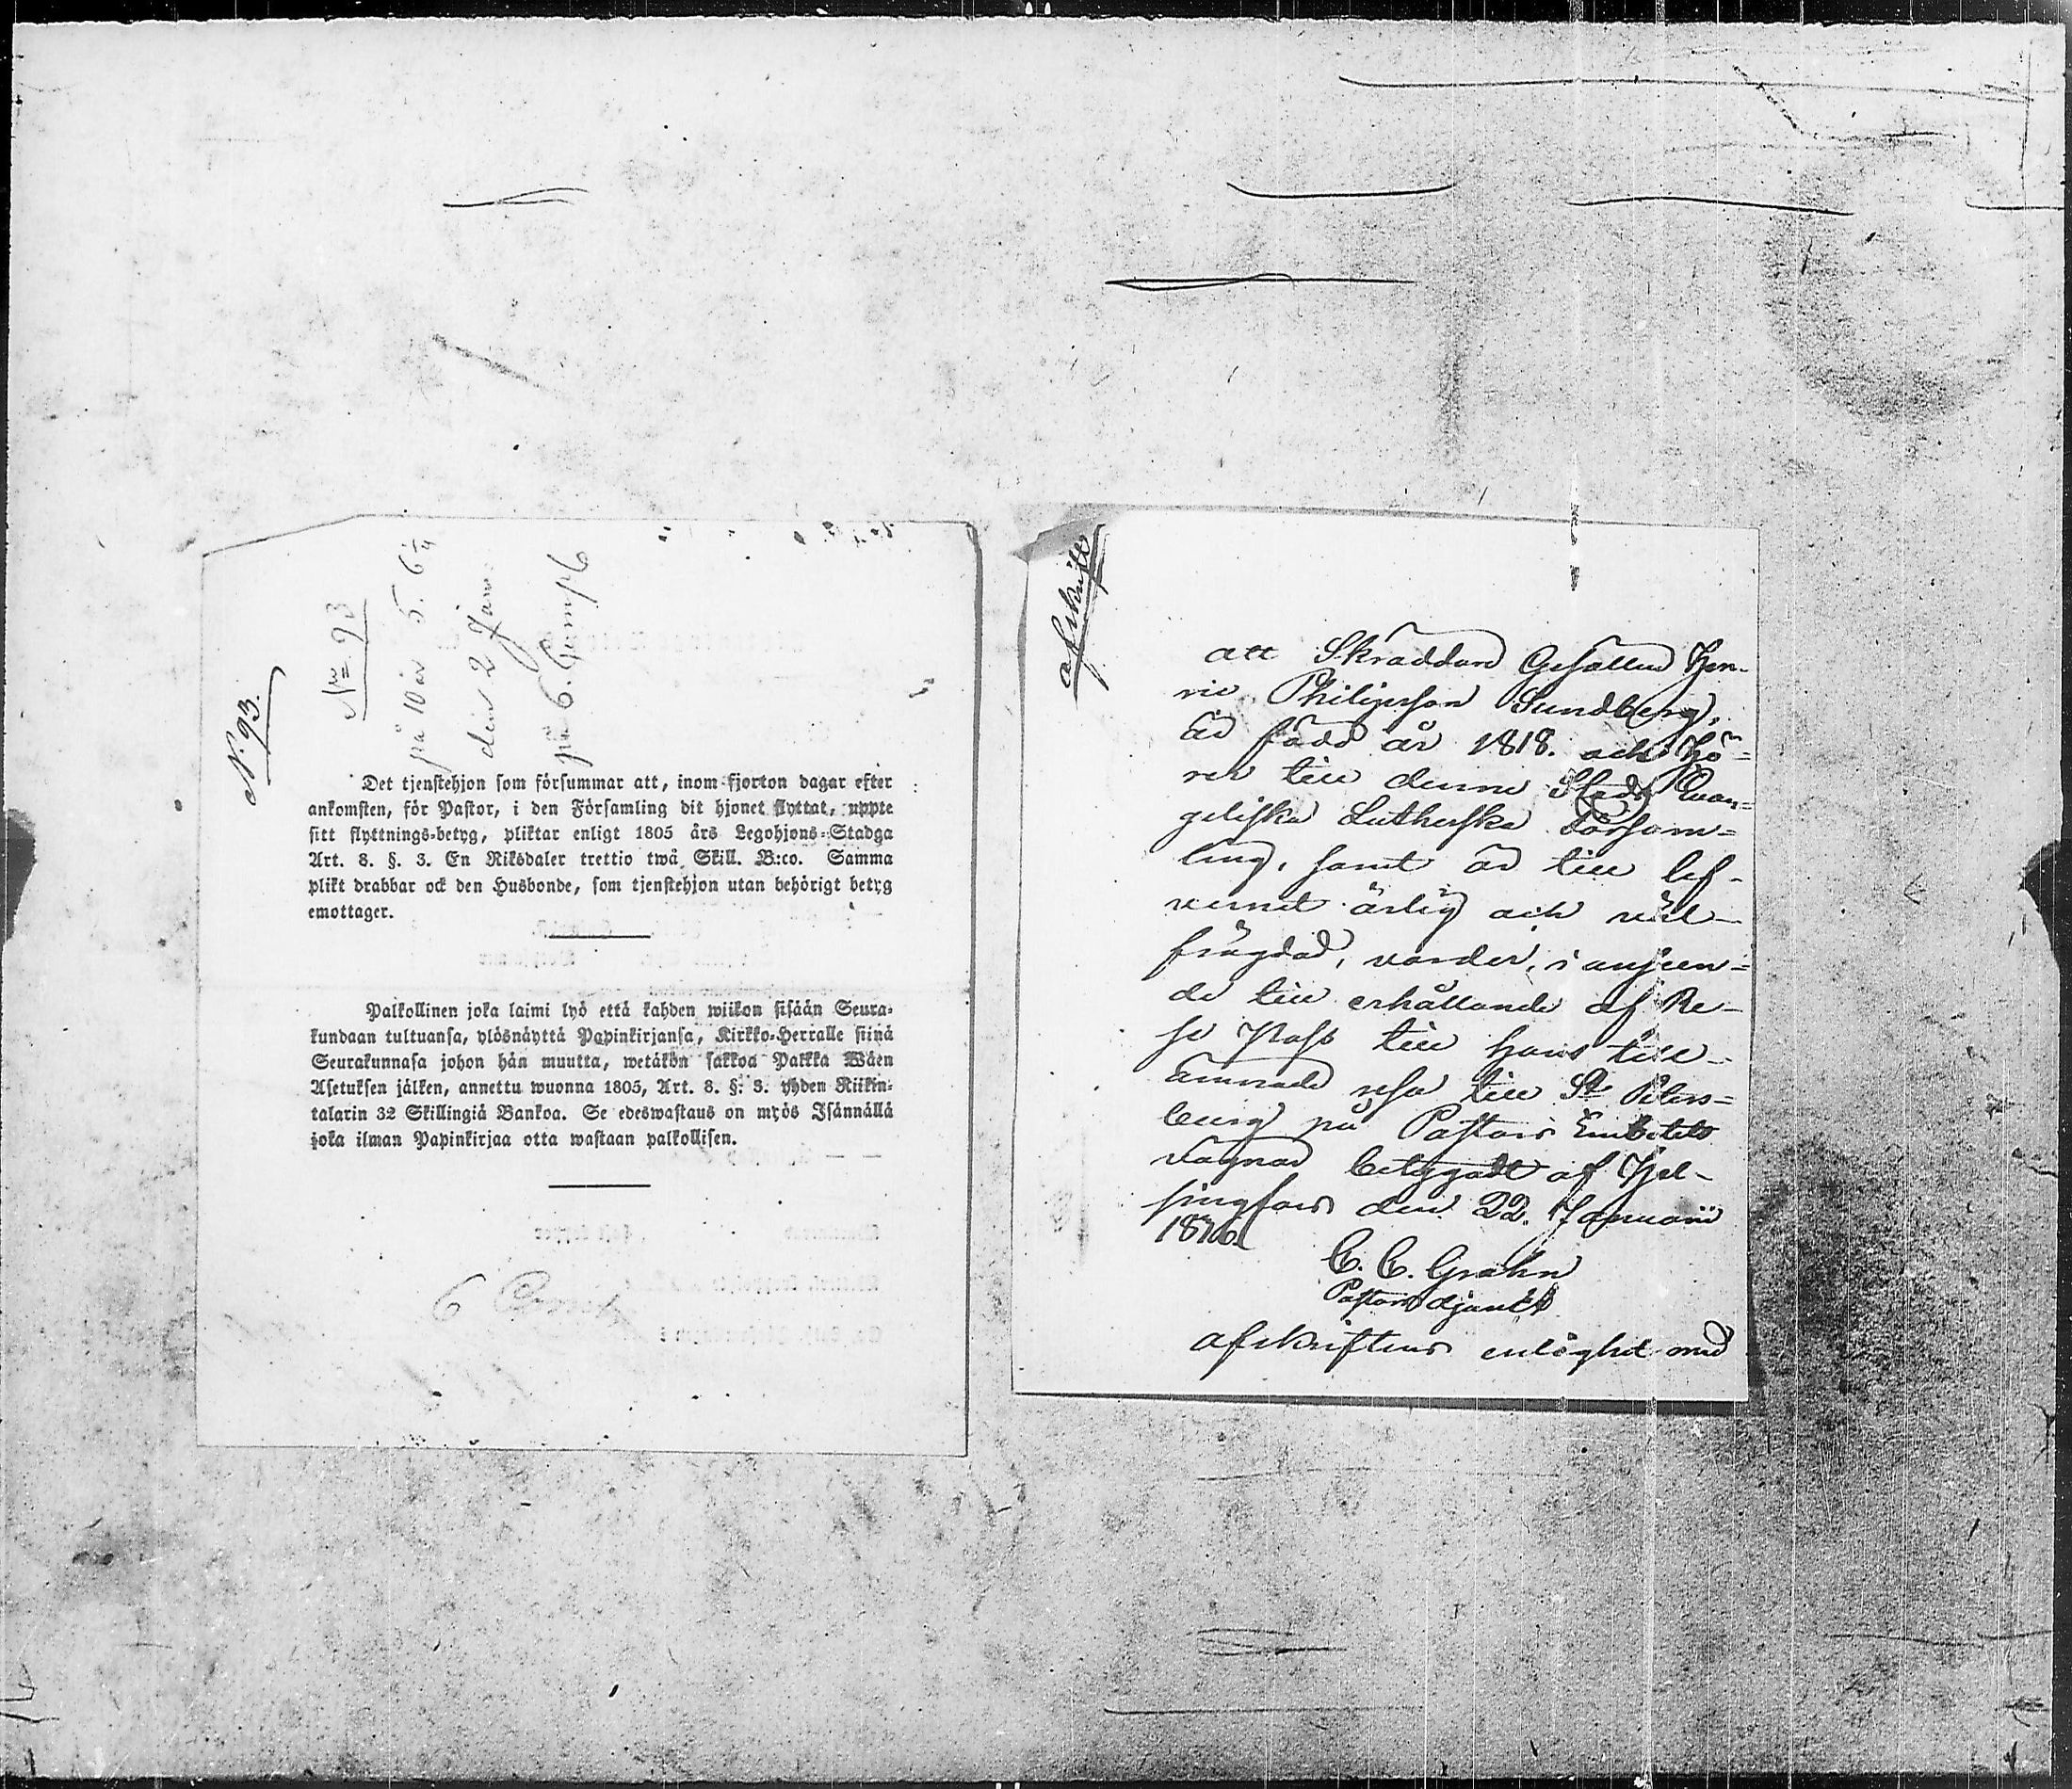 N:93.
Nro 93
på 10 år 5. 6/4
den 2 Janu:
på 6. Comp 6
Det tjenstehjon som försummar att, inom fjorton dagar efter
ankomsten, för Pastor, i den Församling dit hjonet flyttat, uppte
sitt flyttnings-betyg, pliktar enligt 1805 års Legohjons-Stadga
Art. 8. §. 3. En Riksdaler trettio twå Skill. B:co. Samma
plikt drabbar ock den Husbonde, som tjenstehjon utan behörigt betyg
emottager.
Palkollinen joka laimi lyö että kahden wiikon sisään Seura-
kundaan tultuansa, ylösnäyttä Papinkirjansa, Kirkko-Herralle siinä
Seurakunnasa johon hän muutta, wetäkön sakkoa Palkka Wäen
Asetuksen jälken, annettu wuonna 1805, Art. 8. §. 3. yhden Riikin-
talarin 32 Skillingiä Bankoa. Se edeswastaus on myös Isännällä
joka ilman Papinkirjaa otta wastaan palkollisen.
6 Comp
afskrift
att Skräddare Gesällen Hen-
ric Philipsson Sundberg,
är född år 1818. och hö-
rer till denne Stads Evan-
geliska Lutherska Försam-
ling, samt är till lef-
vernet ärlig och väl-
frägdad, varder, i anseen-
de till erhållande af Re-
se Pass till hans till-
ämnade resa till St Peters-
burg på Pastors Embetets
vägnar betygadt af Hel-
singfors den 22. Januarii
1846.
C. C. Grahn
Pastors adjunct
afskriftens enlighet med